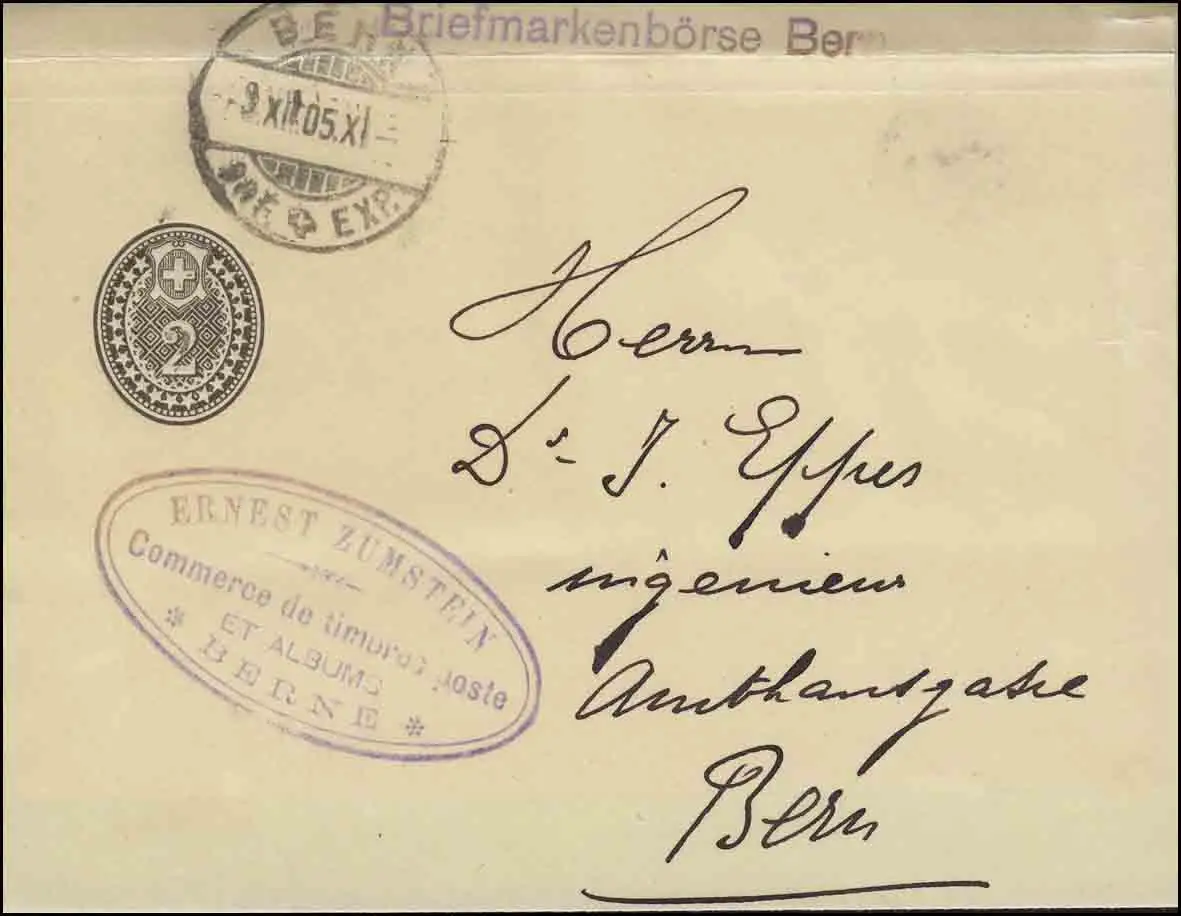 Briefmarkenbörse Bern
BERN
9.XII.05.XI
BRF. EXP.
2
Herrn
Dr. J. Eppes
ingenieur
Amthausgasse
Bern
ERNEST ZUMSTEIN
Commerce de timbres poste
ET ALBUMS
* BERNE *